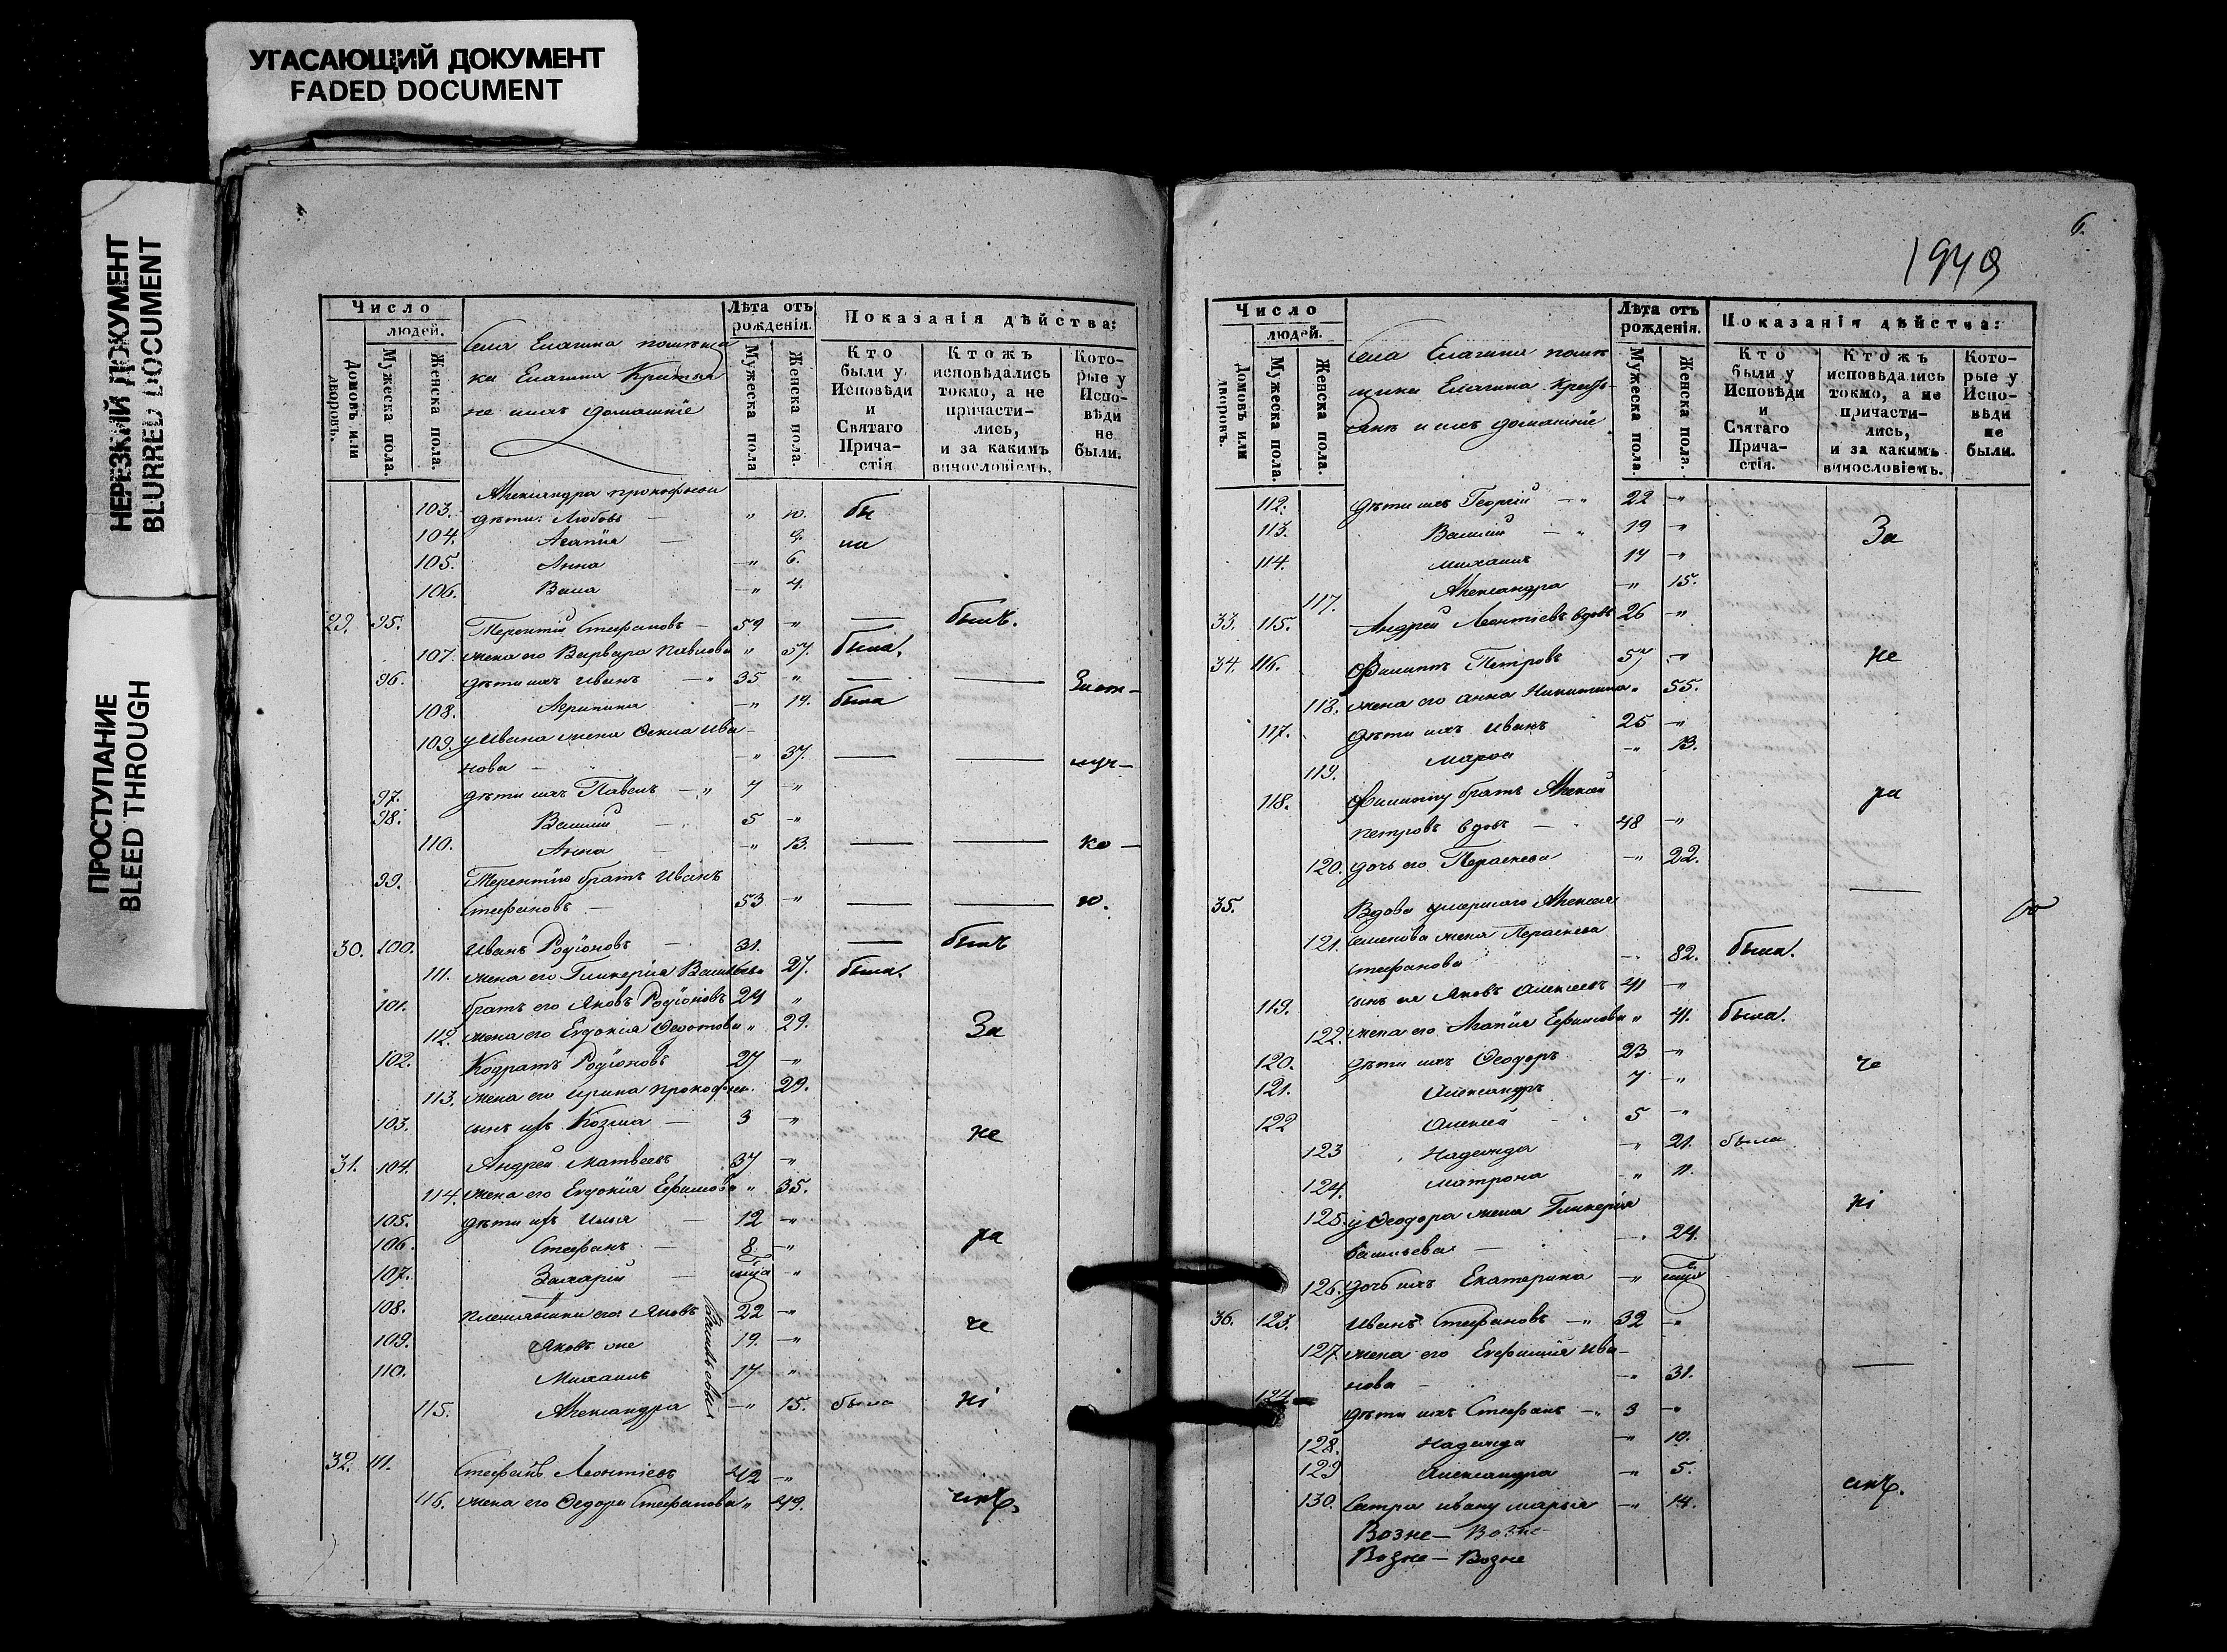 УГАСАЮЩИЙ ДОКУМЕНТ
FADED DOCUMENT
НЕРЕЗКИЙ ДОКУМЕНТ
BLURRED DOCUMENT
ПРОСТУПАНИЕ
BLEED THROUGH
Число
людей.
Домовъ или дворовъ.
Мужеска пола.
Женска пола.
села Елагина помѣщи
ка Елагина
не ихъ домашніе
Лѣта отъ рожденія.
Мужеска пола
Женска пола.
Показанія дѣйства:
Кто были у Исповѣди и Святаго Прича-стія
Ктожъ исповѣдались токмо, а не причасти-лись, и за какимъ винословіемъ.
Кото-рые у Испо-вѣди не были.
Александра
103. дѣти: Любовь — " 10. бы
104. Агапія — 9. ли
105. Анна —" 6.
106. —" 4.
29. 95. Терентій Стефановъ — 59 —" — былъ.
107. жена его Варвара Павлова " 57. была.
96. дѣти ихъ Иванъ —" 35 —" — —
108. Агрипина —" 19. была
109. у Ивана жена Ѳекла Ива-
нова — —" 37. — —
97. дѣти ихъ Павелъ —" 7 —"
98. Василій — 5 —"
110. Анна —" 13. — — ко —
99. Терентію братъ Иванъ
Стефановъ — 53 —" — — ю.
30. 100. Иванъ Родіоновъ — 31. — былъ
111. жена его Гликерія Васильева 27. была.
101. братъ его Яковъ Родіоновъ 24 "
112. жена его Евдокія Ѳедотова " 29. За
102. Кодратъ Родіоновъ 27 —"
113. жена его Ирина Прокофьева 29.
103. сынъ ихъ Козма — 3 —" не
31. 104. Андрей Матвеевъ 37 —"
114. жена его Евдокія Ефимова " 35.
105. дѣти ихъ Илья — 12 —"
106. Стефанъ — 8. —" ра
107. Захарій — —"
108. племянники его Яковъ 22 —" че
109. Яковъ же 19. —"
110. Михаилъ 17 "
115. Александра —" 15. была ні
32. 111. Стефанъ Леонтіевъ 42 —"
116. жена его Ѳедора Стефанова " 49. емъ.
6.
1949
Число
людей.
Домовъ или дворовъ.
Мужеска пола.
Женска пола.
села Елагина помѣ
щика Елагина Кресть-
янъ и ихъ домашніе
Лѣта отъ рожденія.
Мужеска пола.
Женска пола.
Показанія дѣйства:
Кто были у Исповѣди и Святаго Прича-стія.
Ктожъ исповѣдались токмо, а не причасти-лись, и за какимъ винословіемъ.
Кото-рые у Испо-вѣди не были.
112. дѣти ихъ Георгій —" 22 —"
113. Василій —" 19 " За
114. Михаилъ 17 —"
117. Александра —" 15.
33. 115. Андрей Леонтіевъ вдовъ 26 —"
34. 116. Филиппъ Петровъ 57 —" не
118. жена его Анна Никитина " 55.
117. дѣти ихъ Иванъ 25 —"
119. Марѳа —" 13.
118. Филиппу братъ Алексѣй ра
Петровъ вдовъ — 48 —"
120. дочь его Параскева —" 22.
—
35. Вдова умершаго Алексея
121. Семенова жена Параскева
Стефанова — 82. была.
119. сынъ ея Яковъ Алексеевъ 41 —"
122. жена его Агапія Ефимова " 41. была.
120. дѣти ихъ Ѳеодоръ 23 —" че
121. Александръ 7 —"
122 Алексей 5 —"
123 Надежда —" 21. была
124. Матрона —" 11.
125. у Ѳеодора жена Гликерія ні
Васильева — —" 24.
126. дочь ихъ Екатерина —"
36. 123. Иванъ Стефановъ —" 32 —"
127. жена его Евфимія Ива-
нова — —" 31. —
124. дѣти ихъ Стефанъ —" 3 —"
128. Надежда —" 10.
129 Александра —" 5.
130. Сестра Ивану Марья —" 14. емъ.
Возне — Возне
Возне — Возне